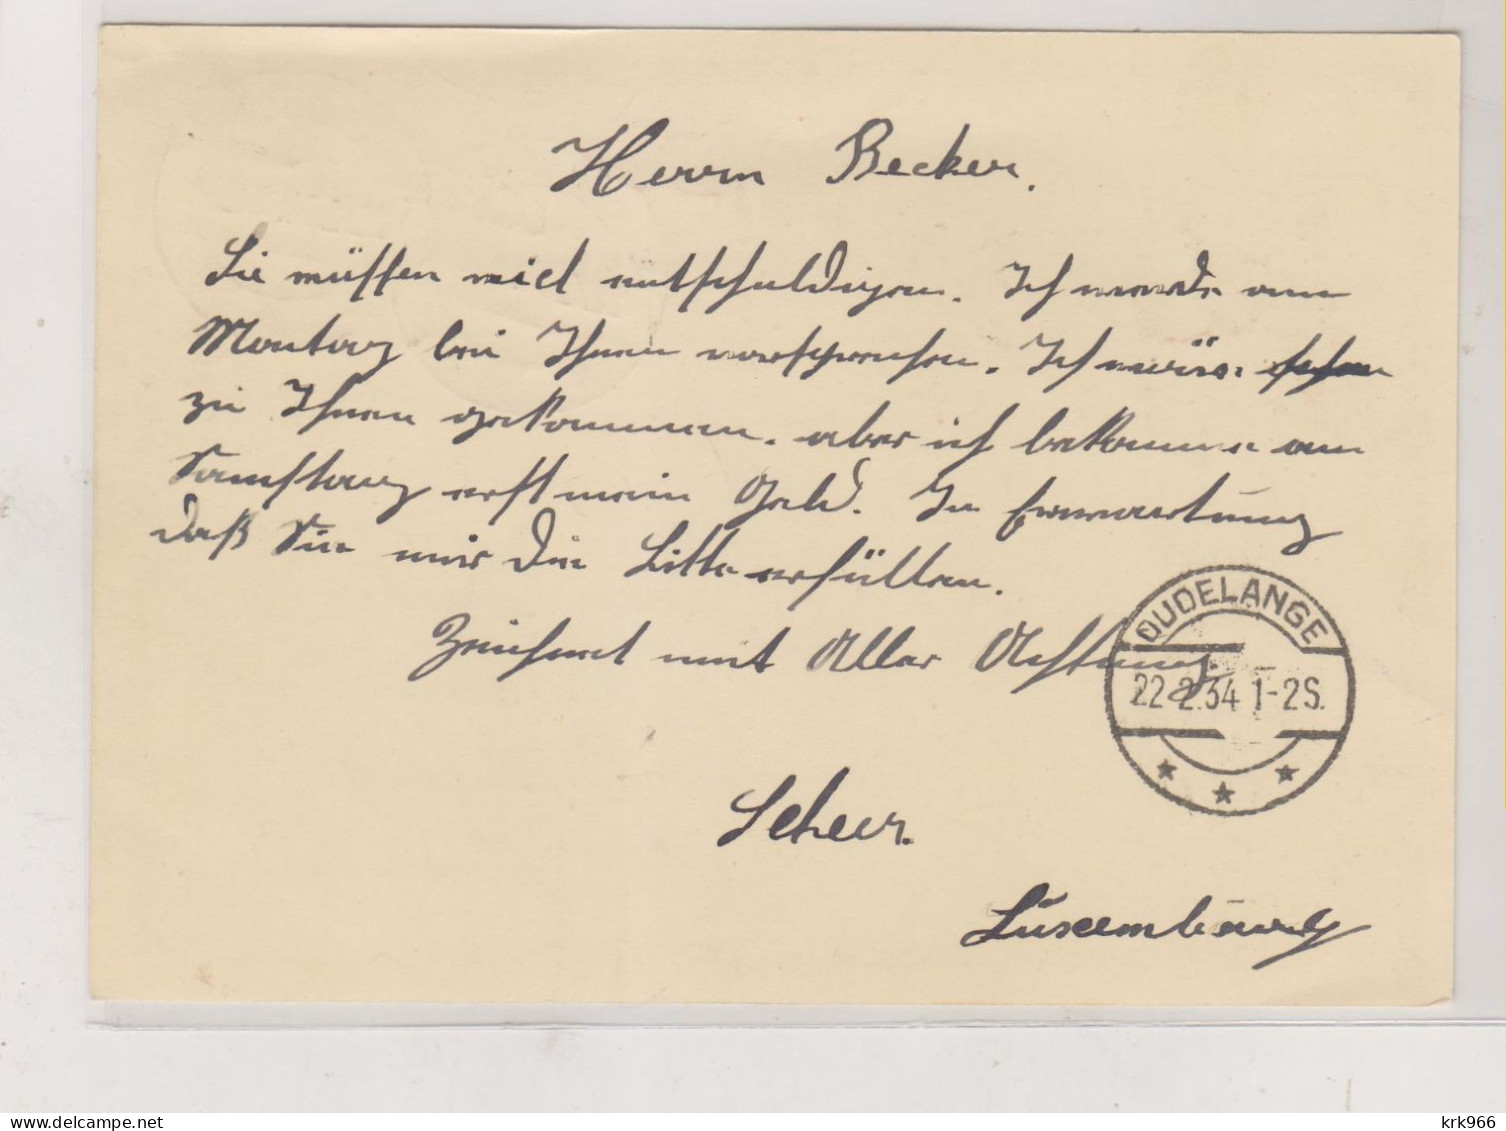 Herrn Becker.
Sie müssen mich entschuldigen. Ich werde am
Montag bei Ihnen vorsprechen. Ich wäre
zu Ihnen gekommen. aber ich bekomme am
Samstag erst mein Geld. In Erwartung
daß Sie mir die Bitte erfüllen.
Zeichnet mit Aller Achtung.
Scheer.
Luxemburg
DUDELANGE
22.2.34 1-2S.
krk966
www.delcampe.net